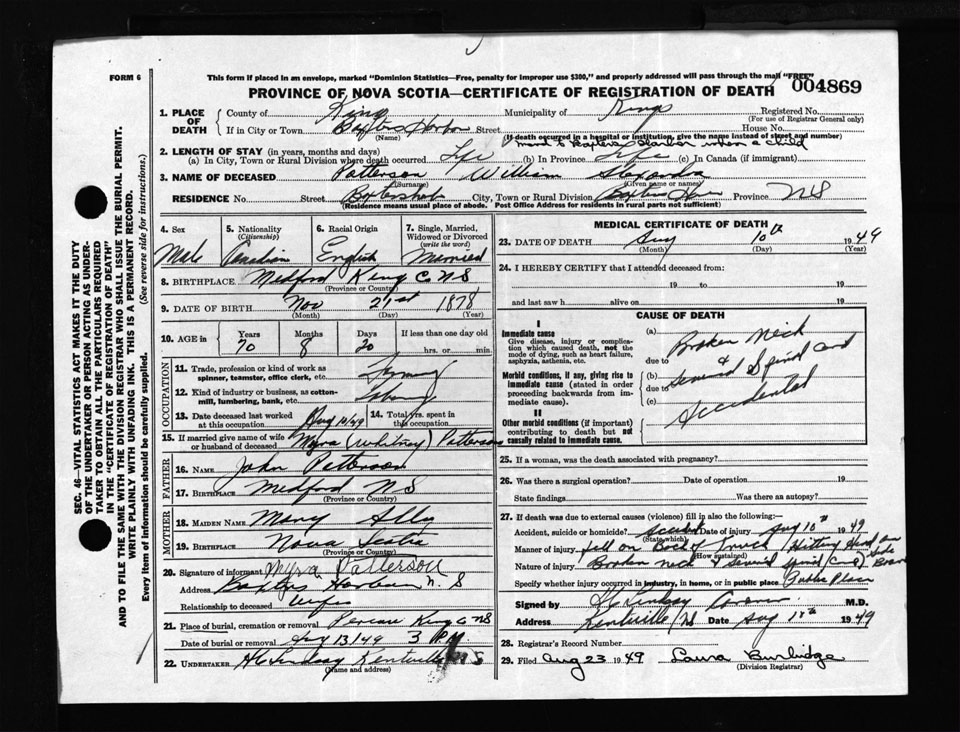 FORM 6
This form if placed in an envelope, marked "Dominion Statistics—Free, penalty for improper use $300," and properly addressed will pass through the mail "FREE"
PROVINCE OF NOVA SCOTIA—CERTIFICATE OF REGISTRATION OF DEATH 004869
1. PLACE OF DEATH
County of Kings Municipality of Kings Registered No.
(For use of Registrar General only)
If in City or Town Baxters Harbor Street House No.
(Name) (If death occurred in a hospital or institution, give the name instead of street and number)
moved to Baxters Harbor when a child
2. LENGTH OF STAY (in years, months and days)
(a) In City, Town or Rural Division where death occurred Life (b) In Province Life (c) In Canada (if immigrant)
3. NAME OF DECEASED Patterson William
(Surname) (Given name or names)
RESIDENCE No. Street City, Town or Rural Division Province NS
(Residence means usual place of abode. Post Office Address for residents in rural parts not sufficient)
4. Sex Male
5. Nationality (Citizenship) Canadian
6. Racial Origin English
7. Single, Married, Widowed or Divorced (write the word) Married
8. BIRTHPLACE Medford Kings Co NS
(Province or Country)
9. DATE OF BIRTH Nov 21st 1878
(Month) (Day) (Year)
10. AGE in Years 70 Months 8 Days 20 If less than one day old hrs. or min.
OCCUPATION
11. Trade, profession or kind of work as spinner, teamster, office clerk, etc.
12. Kind of industry or business, as cotton-mill, lumbering, bank, etc.
13. Date deceased last worked at this occupation Aug 10/49
14. Total yrs. spent in this occupation
15. If married give name of wife or husband of deceased Myra (Whitney) Patterson
FATHER
16. NAME John Patterson
17. BIRTHPLACE Medford NS
(Province or Country)
MOTHER
18. MAIDEN NAME Mary
19. BIRTHPLACE Nova Scotia
(Province or Country)
20. Signature of informant Myra Patterson
Address Baxters Harbour N.S
Relationship to deceased Wife
21. Place of burial, cremation or removal Kings Co NS
Date of burial or removal 13/49 3 PM
22. UNDERTAKER Lindsay Kentville NS
(Name and address)
MEDICAL CERTIFICATE OF DEATH
23. DATE OF DEATH Aug 10th 1949
(Month) (Day) (Year)
24. I HEREBY CERTIFY that I attended deceased from:
19 to 19
and last saw h alive on 19
CAUSE OF DEATH
I
Immediate cause
Give disease, injury or complication which caused death, not the mode of dying, such as heart failure, asphyxia, asthenia, etc.
Morbid conditions, if any, giving rise to immediate cause (stated in order proceeding backwards from immediate cause).
II
Other morbid conditions (if important) contributing to death but not causally related to immediate cause.
(a) Broken Neck
due to
(b) & severed Spinal Cord
due to
(c) Accidental
25. If a woman, was the death associated with pregnancy?
26. Was there a surgical operation? Date of operation 19
State findings Was there an autopsy?
27. If death was due to external causes (violence) fill in also the following:—
Accident, suicide or homicide? Accident Date of injury Aug 10th 1949
(State which)
Manner of injury fell on Back of Truck Hitting Head on Side Board
(How sustained)
Nature of injury Broken neck & severed spinal Cord
Specify whether injury occurred in industry, in home, or in public place Public Place
Signed by Lindsay Coroner M.D.
Address Kentville NS Date Aug 1949
28. Registrar's Record Number
29. Filed Aug 23 1949 Laura Burbidge
(Division Registrar)
SEC. 46—VITAL STATISTICS ACT MAKES IT THE DUTY
OF THE UNDERTAKER OR PERSON ACTING AS UNDERTAKER TO OBTAIN ALL THE PARTICULARS REQUIRED
IN THE "CERTIFICATE OF REGISTRATION OF DEATH"
AND TO FILE THE SAME WITH THE DIVISION REGISTRAR WHO SHALL ISSUE THE BURIAL PERMIT.
WRITE PLAINLY WITH UNFADING INK. THIS IS A PERMANENT RECORD.
Every item of information should be carefully supplied. (See reverse side for instructions.)